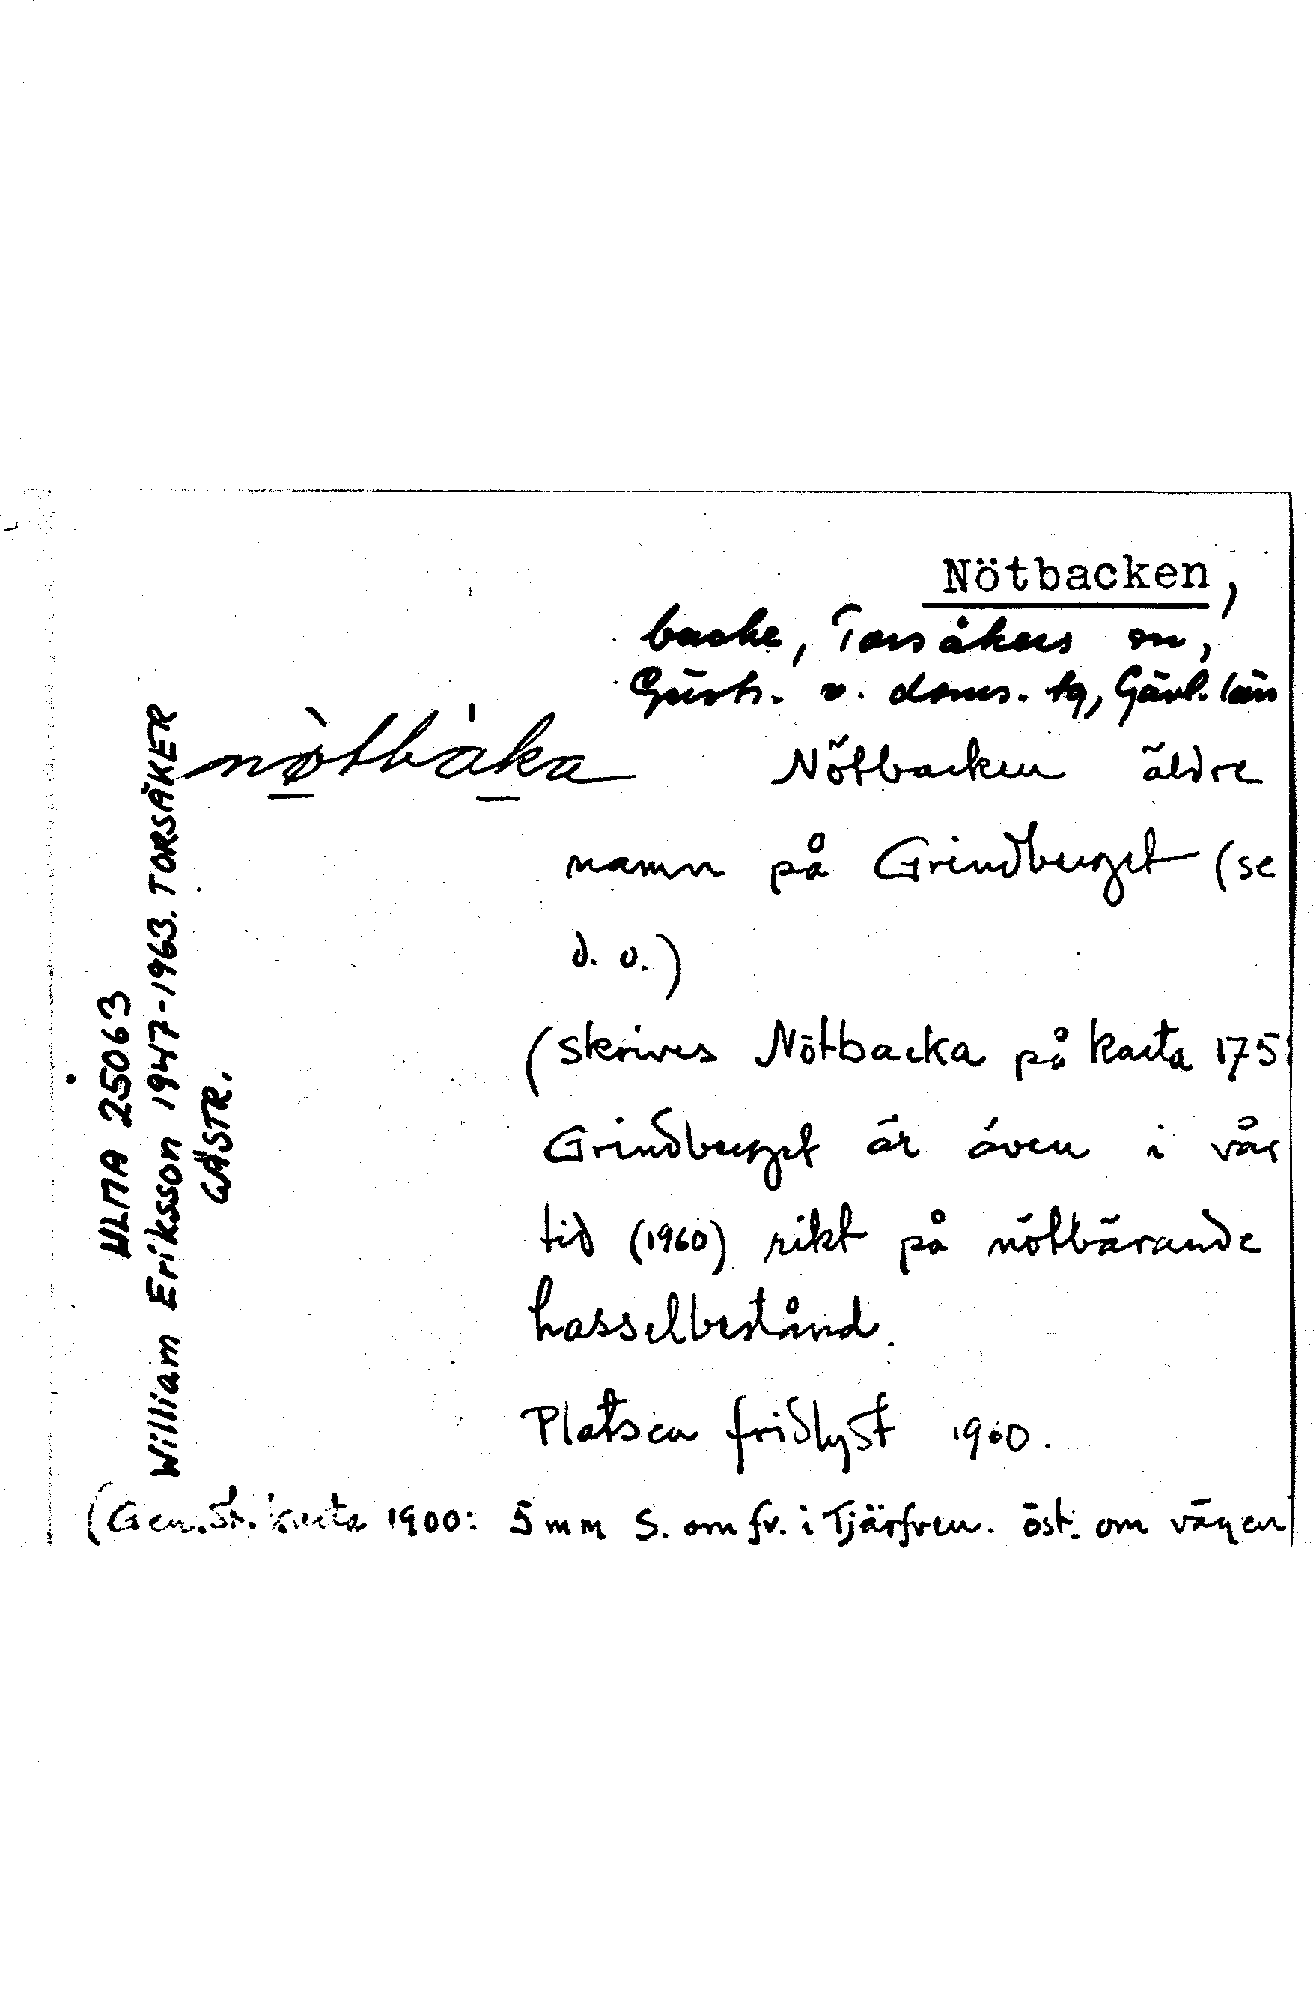 Nötbacken,
backe, Torsåkers sn,
Gästr. v. doms. tg, Gävl. län
nø̀tbàka
Nötbacken äldre
namn på Grindberget (se
d. o.)
(skrives Nötbacka på karta 175
Grindberget är även i vår
tid (1960) rikt på nötbärande
hasselbestånd.
Platsen fridlyst 1960.
(Gen. St. karta 1900: 5 mm S. om fv. i Tjärfven. öst. om vägen
ULMA 25063
William Eriksson 1947-1963. TORSÅKER
GÄSTR.